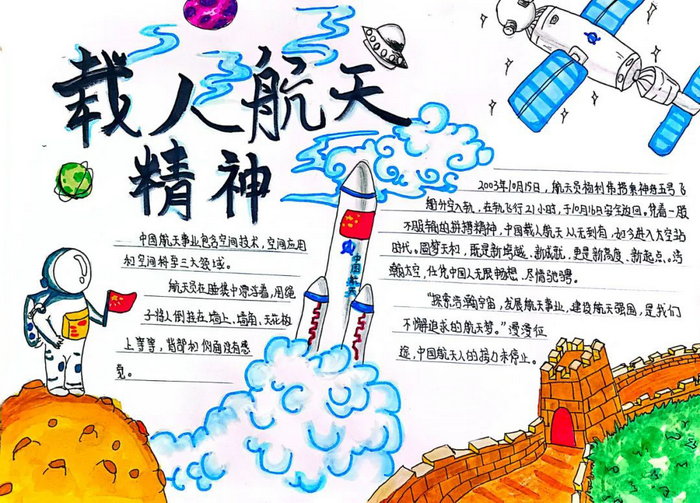 载人航天
精神
中国航天事业包含空间技术,空间应用
和空间科学三大领域。
航天员在睡袋中漂浮着,用绳
子将人倒挂在墙上、墙角、天花板
上等等,背部和侧面没有感
觉。
中国航天
2003年10月15日,航天员杨利伟搭乘神舟五号飞
船升空入轨,在轨飞行21小时,于10月16日安全返回。凭着一股
不服输的拼搏精神,中国载人航天从无到有,如今进入太空站
时代。圆梦天和,既是新跨越、新成就,更是新高度、新起点。浩
瀚太空,任凭中国人无限畅想、尽情驰骋。
“探索浩瀚宇宙,发展航天事业,建设航天强国,是我们
不懈追求的航天梦。”漫漫征
途,中国航天人的接力未停止。